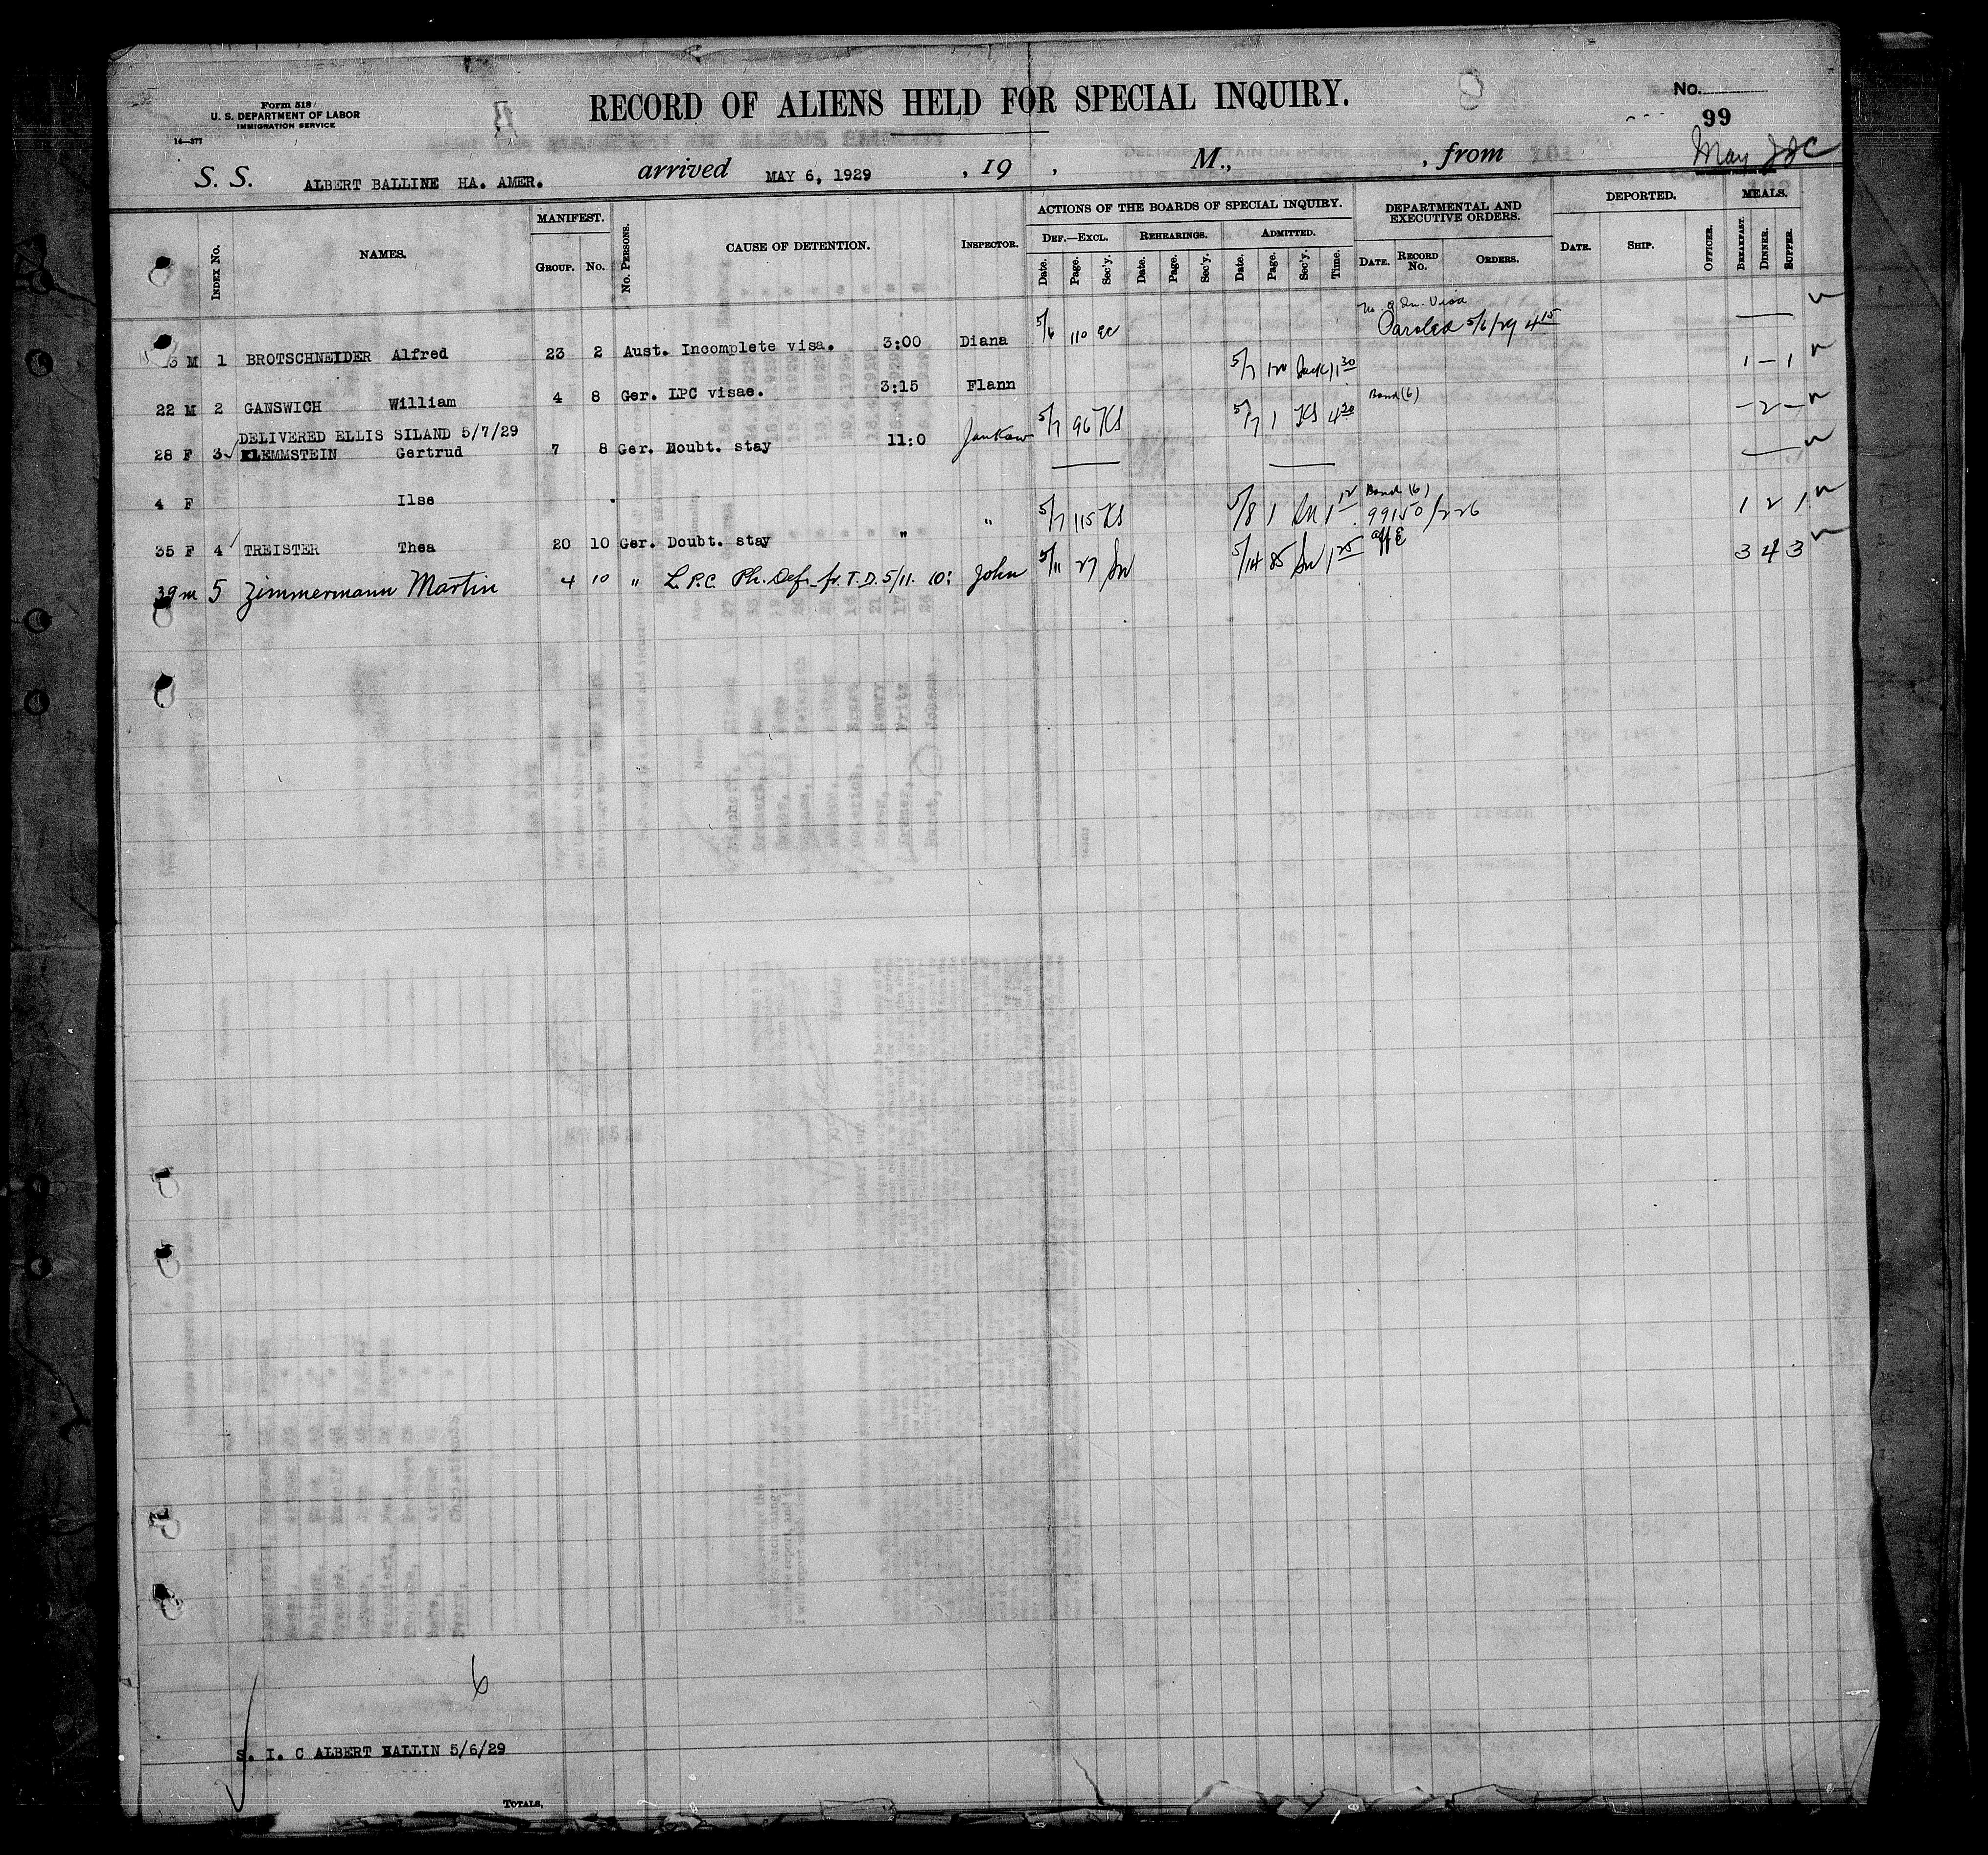 Form 518
U. S. DEPARTMENT OF LABOR
IMMIGRATION SERVICE
14—377
RECORD OF ALIENS HELD FOR SPECIAL INQUIRY.
No.
99
May
S. S. ALBERT BALLINE HA. AMER. arrived MAY 6, 1929 , 19 , M., , from
INDEX No. NAMES. MANIFEST. GROUP. No. No. PERSONS. CAUSE OF DETENTION. INSPECTOR. ACTIONS OF THE BOARDS OF SPECIAL INQUIRY. DEF.—EXCL. Date. Page. Sec'y. REHEARINGS. Date. Page. Sec'y. ADMITTED. Date. Page. Sec'y. Time. DEPARTMENTAL AND EXECUTIVE ORDERS. DATE. RECORD No. ORDERS. DEPORTED. DATE. SHIP. OFFICER. MEALS. BREAKFAST. DINNER. SUPPER.
3 M 1 BROTSCHNEIDER Alfred 23 2 Aust. Incomplete visa. 3:00 Diana 5/6 110 Visa Paroled 5/6/29 4 15
22 M 2 GANSWICH William 4 8 Ger. LPC visae. 3:15 Flann 5/7 1 30 1 — 1
DELIVERED ELLIS SILAND 5/7/29
28 F 3 KLEMMSTEIN Gertrud 7 8 Ger. Doubt. stay 11:0 5/7 96 KS 5/7 1 KS 4 30 Bond (6) — 2 —
4 F Ilse
35 F 4 TREISTER Thea 20 10 Ger. Doubt. stay " " 5/7 115 KS 5/8 1 Bond (6) 99150/226 1 2 1
39 m 5 Zimmermann Martin 4 10 " L.P.C. Ph. Def. fr. T.D. 5/11. 10: John 5/11 27 5/14 85 1 25 3 4 3
6
S. I. C ALBERT BALLIN 5/6/29
TOTALS,